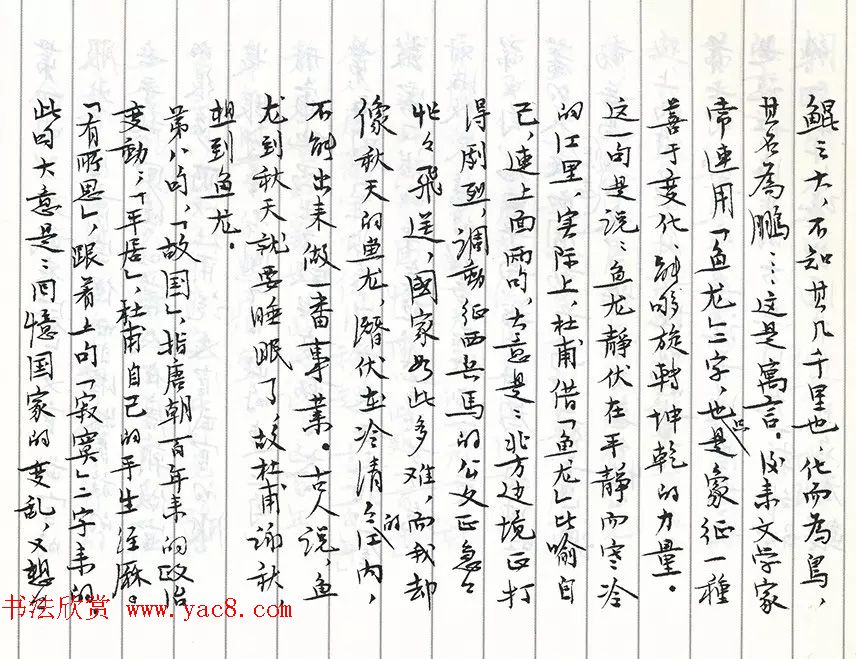 鲲之大，不知其几千里也，化而為鳥，
其名為鵬…这是寓言。后来文学家
常連用「鱼龙」二字，也是象征一種
善于变化、能够旋轉坤乾的力量。
这一句是说：鱼龙静伏在平静而寒冷
的江里，实际上，杜甫借「鱼龙」比喻自
己，連上面两句，大意是：北方边境正打
得剧烈，调动征西兵馬的公文正急々
忙々飛送，國家如此多难，而我却
像秋天的鱼龙，潛伏在冷清的江内，
不能出来做一番事業。古人说，鱼
龙到秋天就要睡眠了，故杜甫詠秋
想到鱼龙。
第八句，「故国」，指唐朝百年来的政治
变動；「平居」，杜甫自己的平生经厤。
「有所思」，跟着上句「寂寞」二字来的
此句大意是：回憶国家的变乱，又想
书法欣赏 www.yac8.com